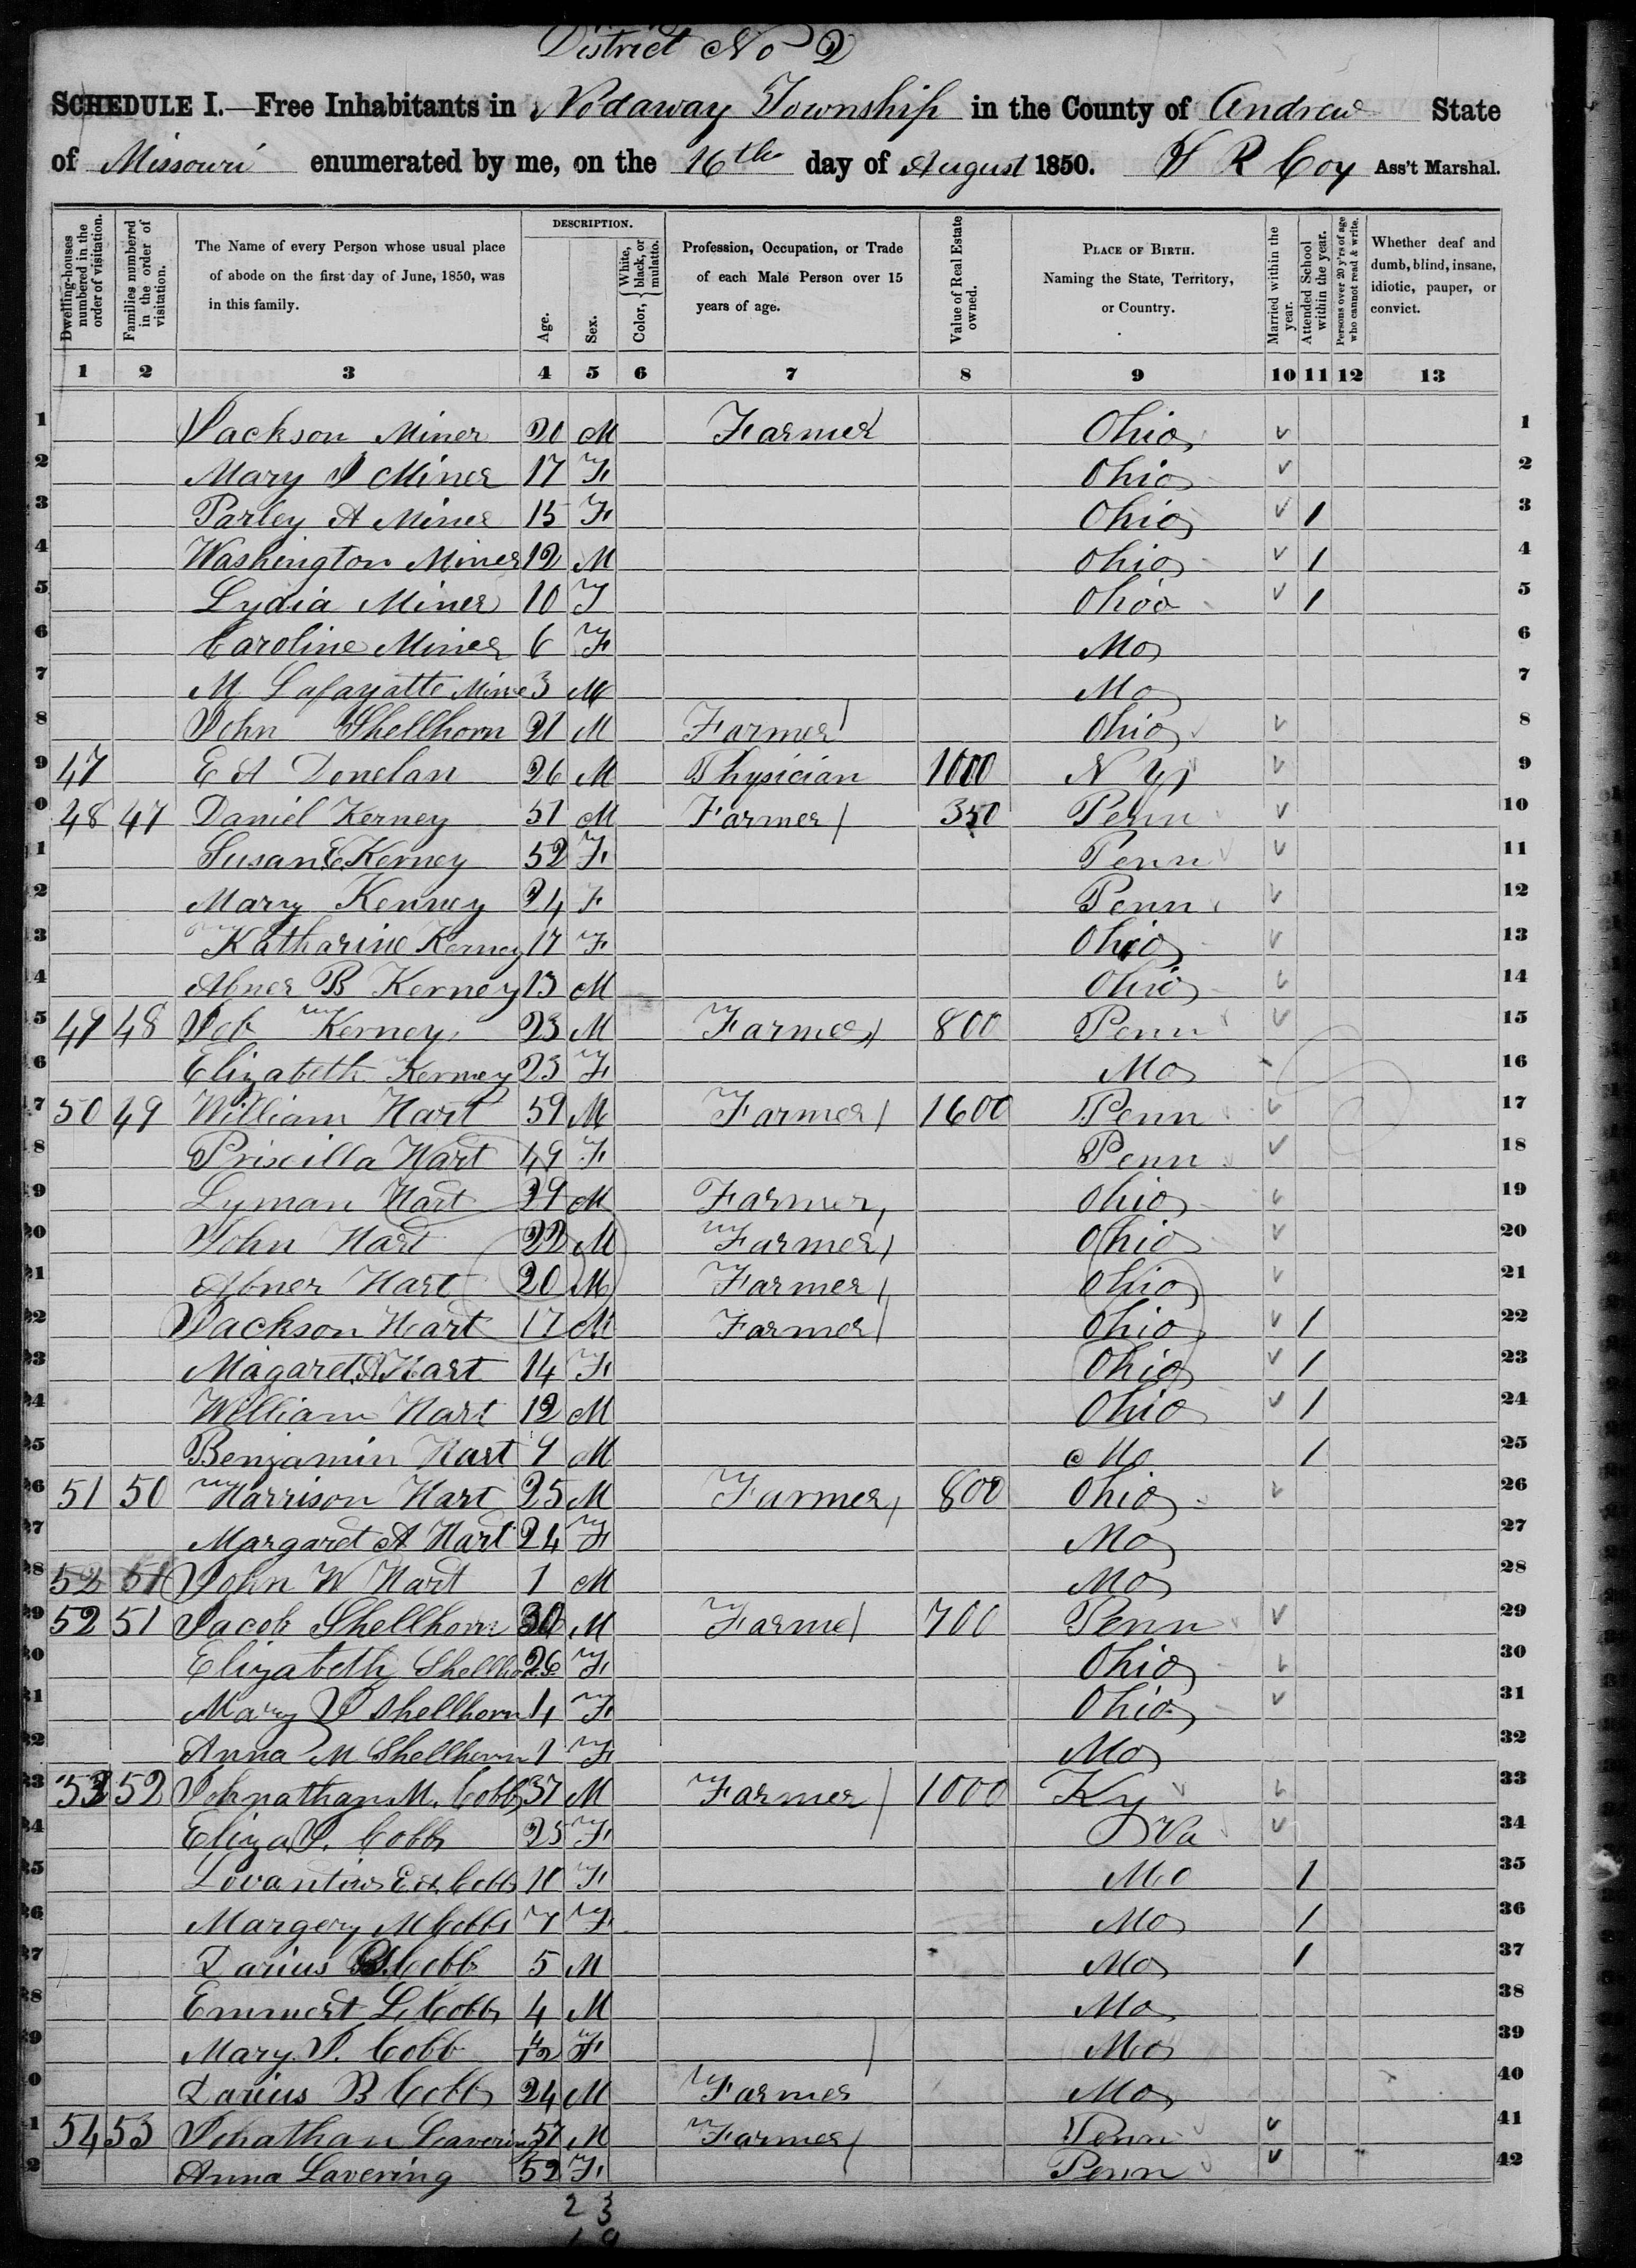 District No 2
SCHEDULE I.—Free Inhabitants in Nodaway Township in the County of Andrew State
of Missouri enumerated by me, on the 16th day of August 1850. R Coy Ass't Marshal.
Dwelling-houses numbered in the order of visitation.
Families numbered in the order of visitation.
The Name of every Person whose usual place of abode on the first day of June, 1850, was in this family.
DESCRIPTION.
Age.
Sex.
Color, { White, black, or mulatto.
Profession, Occupation, or Trade of each Male Person over 15 years of age.
Value of Real Estate owned.
PLACE OF BIRTH. Naming the State, Territory, or Country.
Married within the year.
Attended School within the year.
Persons over 20 y'rs of age who cannot read & write.
Whether deaf and dumb, blind, insane, idiotic, pauper, or convict.
1 2 3 4 5 6 7 8 9 10 11 12 13
1 Jackson Miner 20 M Farmer Ohio 1
2 Mary J Miner 17 F Ohio 2
3 Parley A Miner 15 F Ohio 1 3
4 Washington Miner 12 M Ohio 1 4
5 Lydia Miner 10 F Ohio 1 5
6 Caroline Miner 6 F Mo 6
7 M Lafayatte Mine 3 M Mo 7
8 John Shellhorn 21 M Farmer Ohio 8
9 47 E A Donelan 26 M Physician 1000 N Y 9
0 48 47 Daniel Kerney 51 M Farmer 350 Penn 10
1 Susan C. Kerney 52 F Penn 11
2 Mary Kerney 24 F Penn 12
3 Katharine Kerney 17 F Ohio 13
4 Abner B Kerney 13 M Ohio 14
5 49 48 Job Kerney 23 M Farmer 800 Penn 15
6 Elizabeth Kerney 23 F Mo 16
7 50 49 William Hart 59 M Farmer 1600 Penn 17
8 Priscilla Hart 49 F Penn 18
9 Lyman Hart 29 M Farmer Ohio 19
20 John Hart 22 M Farmer Ohio 20
21 Abner Hart 20 M Farmer Ohio 21
22 Jackson Hart 17 M Farmer Ohio 1 22
23 Magaret A Hart 14 F Ohio 1 23
24 William Hart 12 M Ohio 1 24
25 Benjamin Hart 9 M Mo 1 25
26 51 50 Harrison Hart 25 M Farmer 800 Ohio 26
27 Margaret A Hart 24 F Mo 27
28 52 51 John W Hart 1 M Mo 28
29 52 51 Jacob Shellhorn 30 M Farme 700 Penn 29
30 Elizabeth Shellhorn 26 F Ohio 30
31 Mary J Shellhorn 4 F Ohio 31
32 Anna M Shellhorn 1 F Mo 32
33 53 52 Johnathan M. Cobb 37 M Farmer 1000 Ky 33
34 Eliza J. Cobb 25 F Va 34
35 Cobb 10 F Mo 1 35
36 Margery M Cobb 7 F Mo 1 36
37 Darius Cobb 5 M Mo 1 37
38 Emmert L Cobb 4 M Mo 38
39 Mary J. Cobb 4/12 F Mo 39
0 Darius B Cobb 24 M Farmer Mo 40
1 54 53 Johathan Lavering 57 M Farmer Penn 41
2 Anna Lavering 52 F Penn 42
23
19